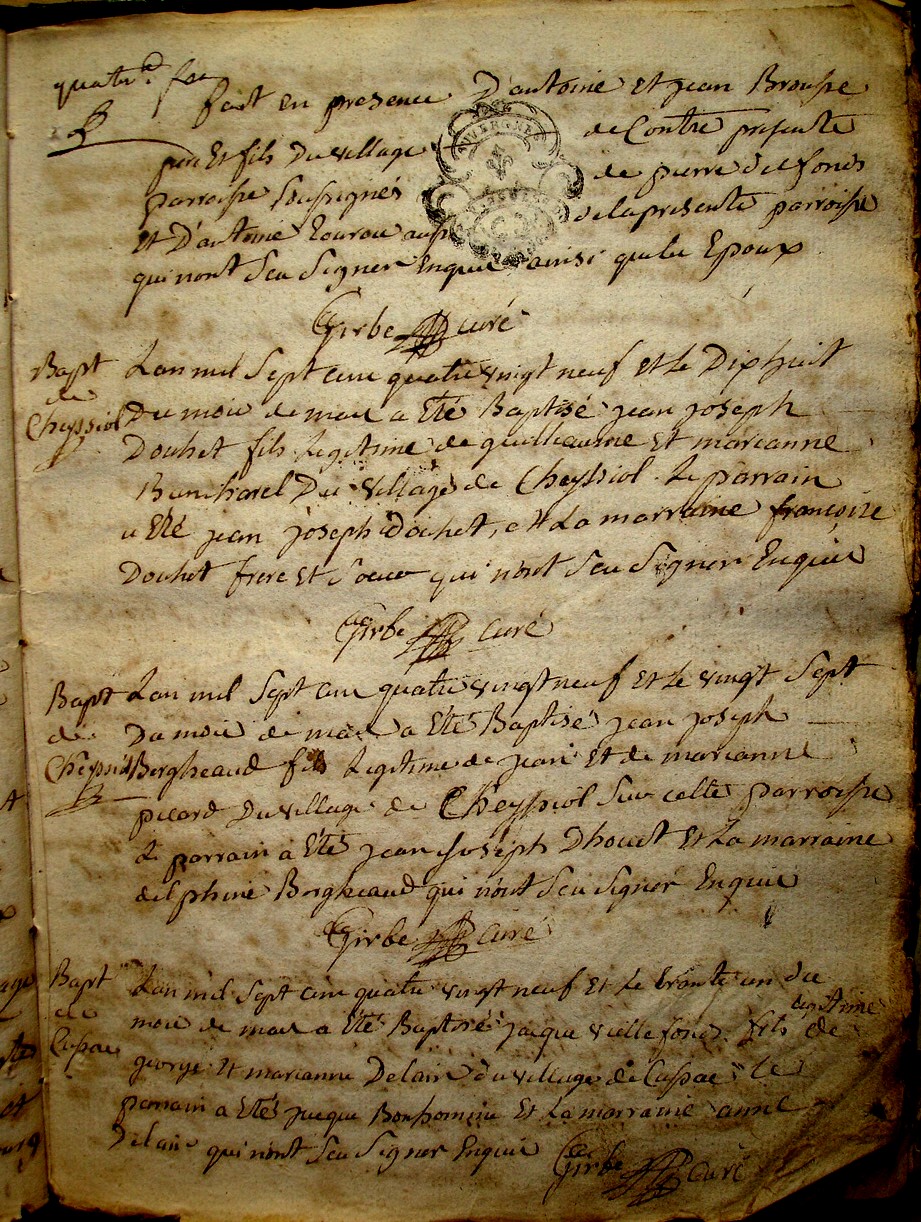 quatr^e feu
fait en presence D'antoine Et jean Brousse
pere Et fils Du village de Contre presente
parroisse soussignés de pierre delfons
AUVERGNE
Et D'antoine aussi de la presente parroisse
qui nont Seu Signer Enquis ainsi que les Epoux
Girbe curé
Bapt
de
Cheyssiol
Lan mil Sept cens quatre vingt neuf Et Le Dixhuit
Du mois de mars a Eté Baptisé jean joseph
Douhet fils Legitime de guilleaume Et marianne
Du village de Cheyssiol. Le parrain
a Eté jean joseph Douhet, et La marraine françoise
Douhet frere Et Soeur qui nont Seu Signer Enquis
Girbe curé
Bapt
de
Cheyssiol
Lan mil Sept cens quatre vingt neuf Et Le vingt Sept
Du mois de mars a Eté Baptisé jean joseph
Bergheaud fils Legitime de jean Et de marianne
picard Du village de Cheyssiol Sur cette parroisse
Le parrain a Eté jean joseph Dhouet Et La marraine
delphine Bergheaud qui nont Seu Signer Enquis
Girbe curé
Bapt
de
Cussac
Lan mil Sept cens quatre vingt neuf Et Le trente un du
mois de mars a Eté Baptisé jacque vielle fond fils legitime de
george Et marianne Delair du village de Cussac Le
parrain a Eté jacque Bonhomme Et La marraine anne
Delair qui nont Seu Signer Enquis
Girbe curé